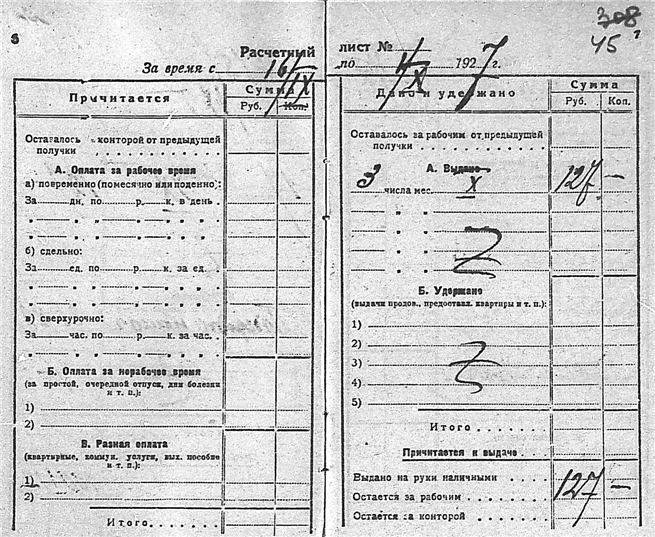 308
45
Расчетный лист №
За время с 16/IX по 4/X 1927 г.
Причитается
Сумма
Руб. Коп.
Оставалось за конторой от предыдущей
получки
А. Оплата за рабочее время
а) повременно (помесячно или поденно):
За дн. по р. к. в день
" " " "
" " " "
б) сдельно:
За ед. по р. к. за ед.
" " " "
" " " "
в) сверхурочно:
За час. по р. к. за час.
" " " "
Б. Оплата за нерабочее время
(за простой, очередной отпуск, дни болезни
и т. п.):
1)
2)
В. Разная оплата
(квартирные, коммун. услуги, вых. пособие
и т. п.):
1)
2)
Итого
Дано и удержано
Сумма
Руб. Коп.
Оставалось за рабочим от предыдущей
получки
А. Выдано
3 числа мес. X 127 —
" "
" "
" "
Б. Удержано
(выдачи продов., предоставл. квартиры и т. п.):
1)
2)
3)
4)
5)
Итого
Причитается к выдаче
Выдано на руки наличными 127 —
Остается за рабочим
Остается за конторой